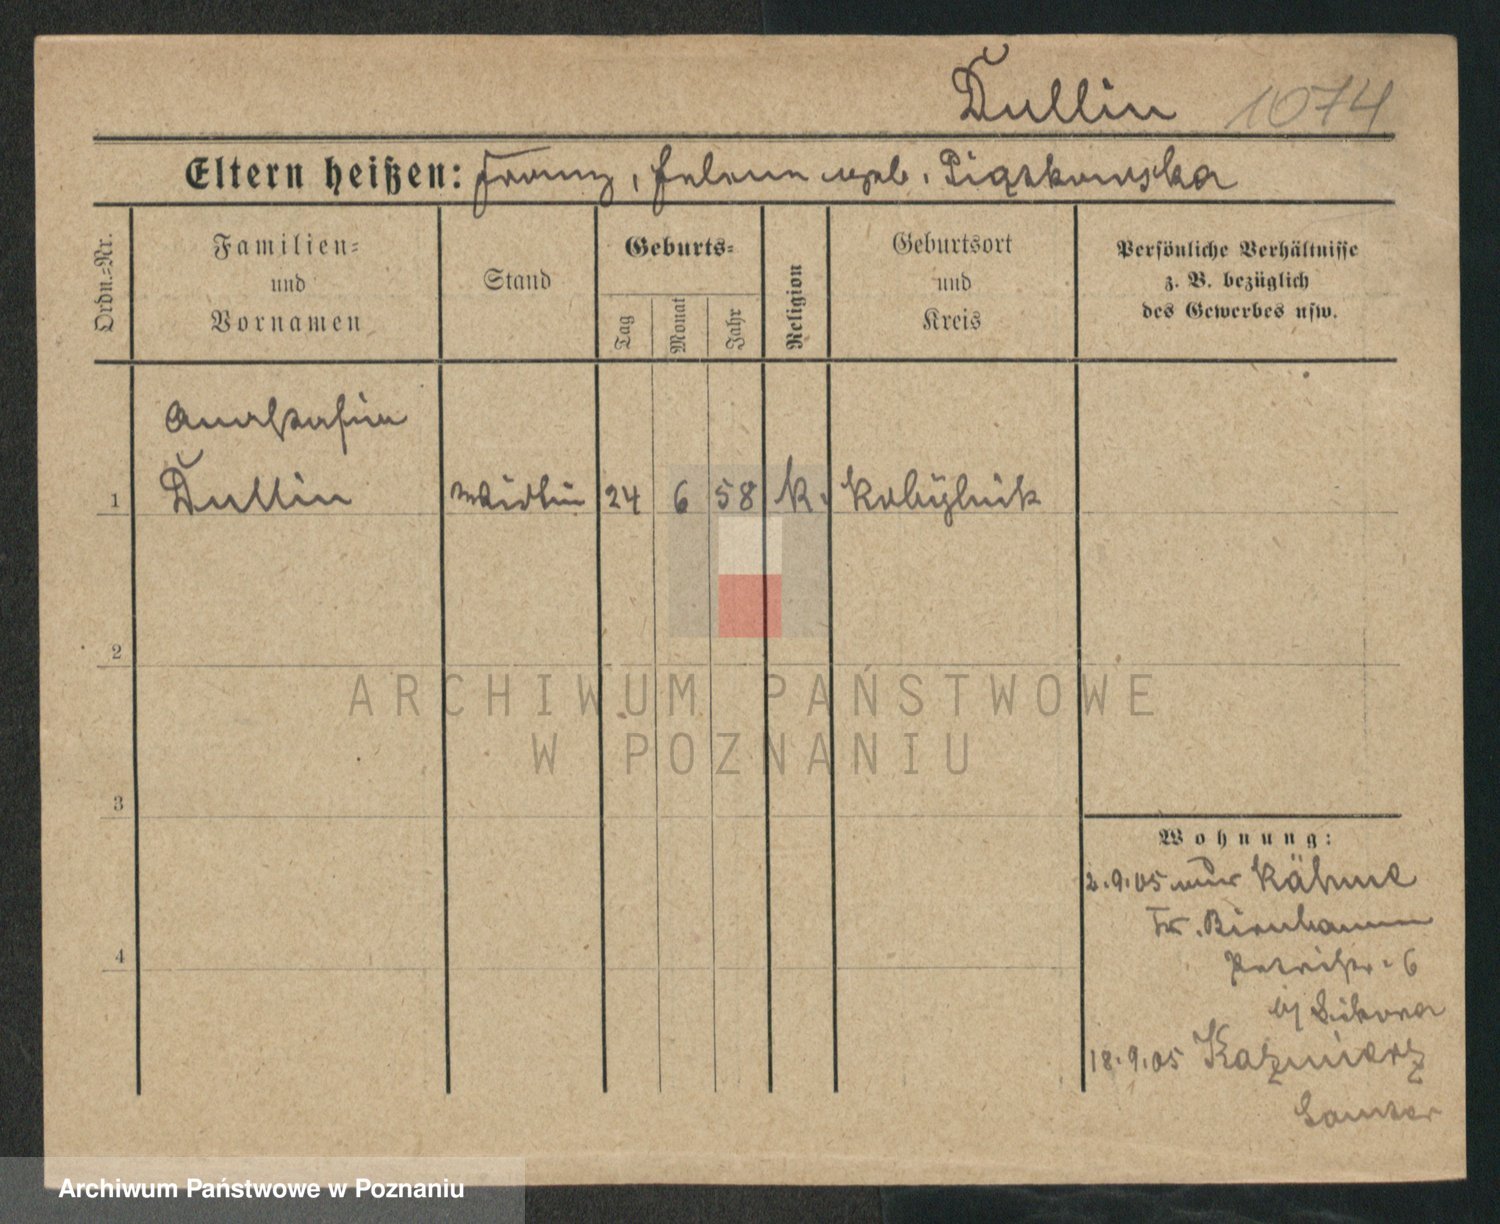 Dullin 1074
Eltern heißen: Franz, Helene geb. Piątkowska
Ordn.=Nr.
Familien=
und
Vornamen
Stand
Geburts=
Tag
Monat
Jahr
Religion
Geburtsort
und
Kreis
Persönliche Verhältnisse
z. B. bezüglich
des Gewerbes usw.
Anastasia
1 Dullin 24 6 58 k. Kobylnik
2
ARCHIWUM PAŃSTWOWE
W POZNANIU
3
Wohnung:
2.9.05 Kähme
Kr. Birnbaum
4
6
b/ Sikora
18.9.05 Kazmierz
Samter
Archiwum Państwowe w Poznaniu